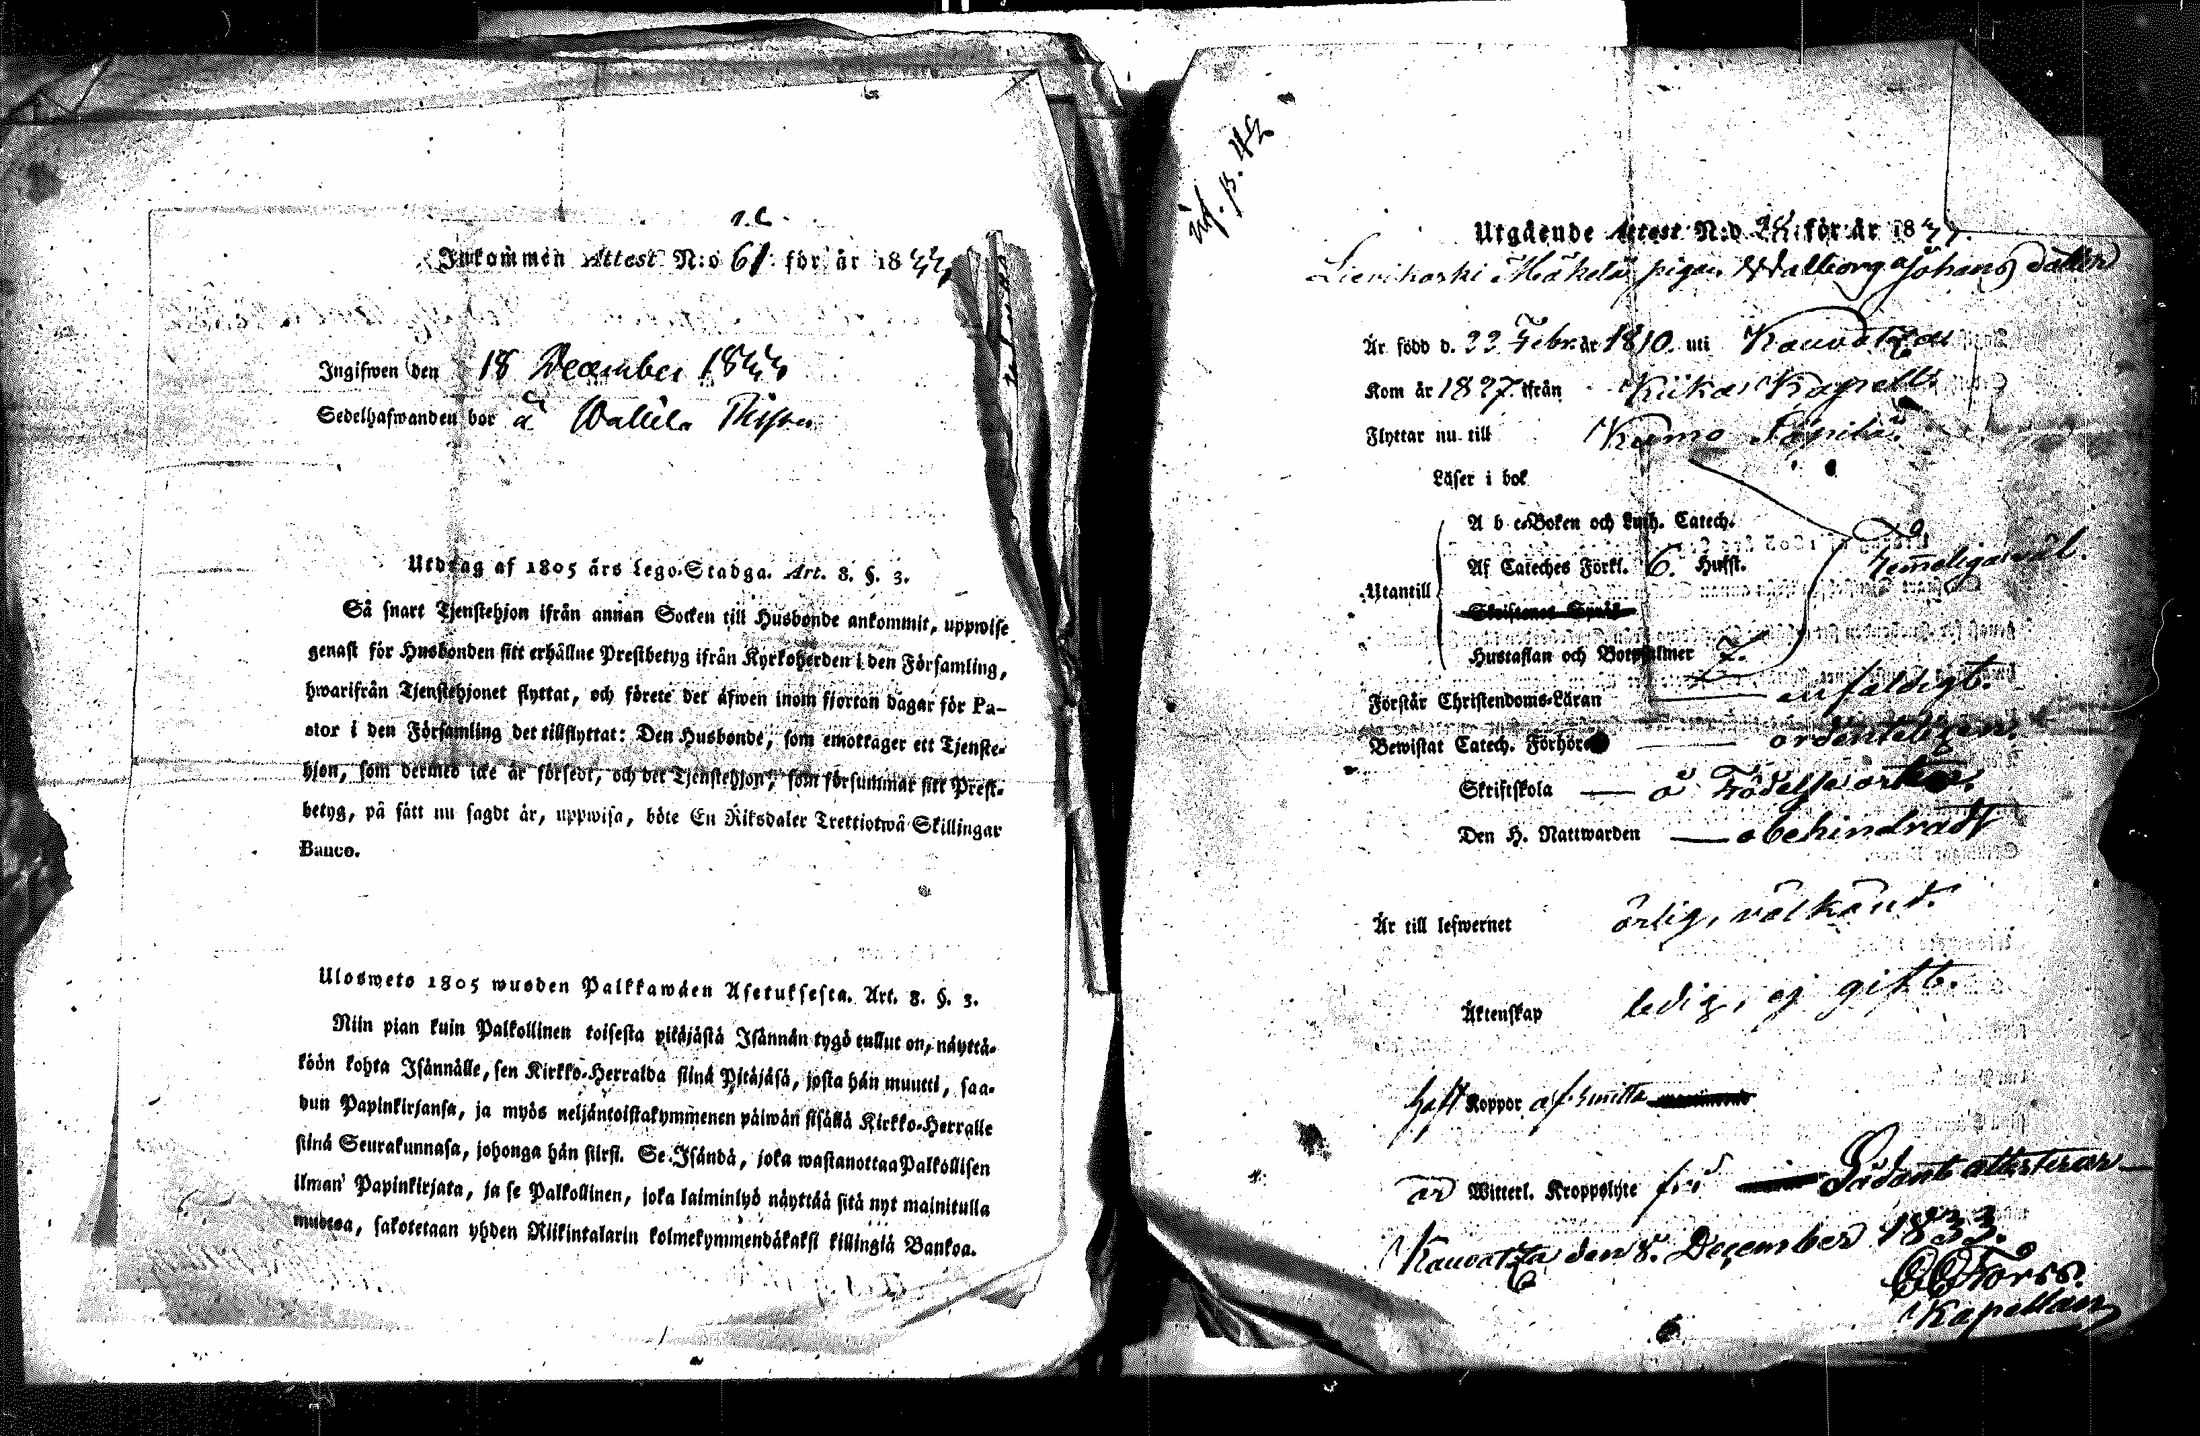 Inkommen Attest N:o 61 för år 1833
Ingifwen den 18 December 1833
Sedelhafwanden bor å Wallila
Utdrag af 1805 års Lego-Stadga. Art. 8. §. 3.
Så snart Tjenstehjon ifrån annan Socken till Husbonde ankommit, uppwise
genast för Husbonden sitt erhållne Prestbetyg ifrån Kyrkoherden i den Församling,
hwarifrån Tjenstehjonet flyttat, och förete det äfwen inom fjorton dagar för Pa-
stor i den Församling det tillflyttat: Den Husbonde, som emottager ett Tjenste-
hjon, som dermed icke är försedt, och det Tjenstehjon, som försummar sitt Prest-
betyg, på sätt nu sagdt är, uppwisa, böte En Riksdaler Trettiotwå Skillingar
Banco.
Ulosweto 1805 wuoden Palkkawäen Asetuksesta. Art. 8. §. 3.
Niin pian kuin Palkollinen toisesta pitäjästä Isännän tygö tullut on, näyttä-
köön kohta Isännälle, sen Kirkko-Herralda siinä Pitäjäsä, josta hän muutti, saa-
dun Papinkirjansa, ja myös neljäntoistakymmenen päiwän sisällä Kirkko-Herralle
siinä Seurakunnasa, johonga hän siirsi. Se Isändä, joka wastanottaa Palkollisen
ilman' Papinkirjata, ja se Palkollinen, joka laiminlyö näyttää sitä nyt mainitulla
muotoa, sakotetaan yhden Riikintalarin kolmekymmendäkaksi killingiä Bankoa.
inf. p. 42
Utgående Attest N:o 24 för år 1833.
Lievikoski Mäkelä pigan Walborg Johans dotter
Är född d. 22 Febr. år 1810. uti Kauvatza
Kom år 1827. ifrån Kiikas Kapell.
Flyttar nu till Kumo
Läser i bok
A b c-Boken och Luth. Catech.
Utantill
Af Cateches Förkl. 6. Hufst.
temeligen väl.
Skriftenes Språk
Hustaflan och Botpsalmer 7.
Förstår Christendoms-Läran enfaldigt.
Bewistat Catech. Förhören ordenteligen.
Skriftskola — å Födelse orten.
Den H. Nattwarden — obehindradt
Är till lefwernet ärlig, välkänd.
Äktenskap ledig, ej gift.
haft Koppor af smitta
är Witterl. Kroppslyte fri Sådant attesterar
Kauvatza den 8. December 1833.
Forss.
Kapellan